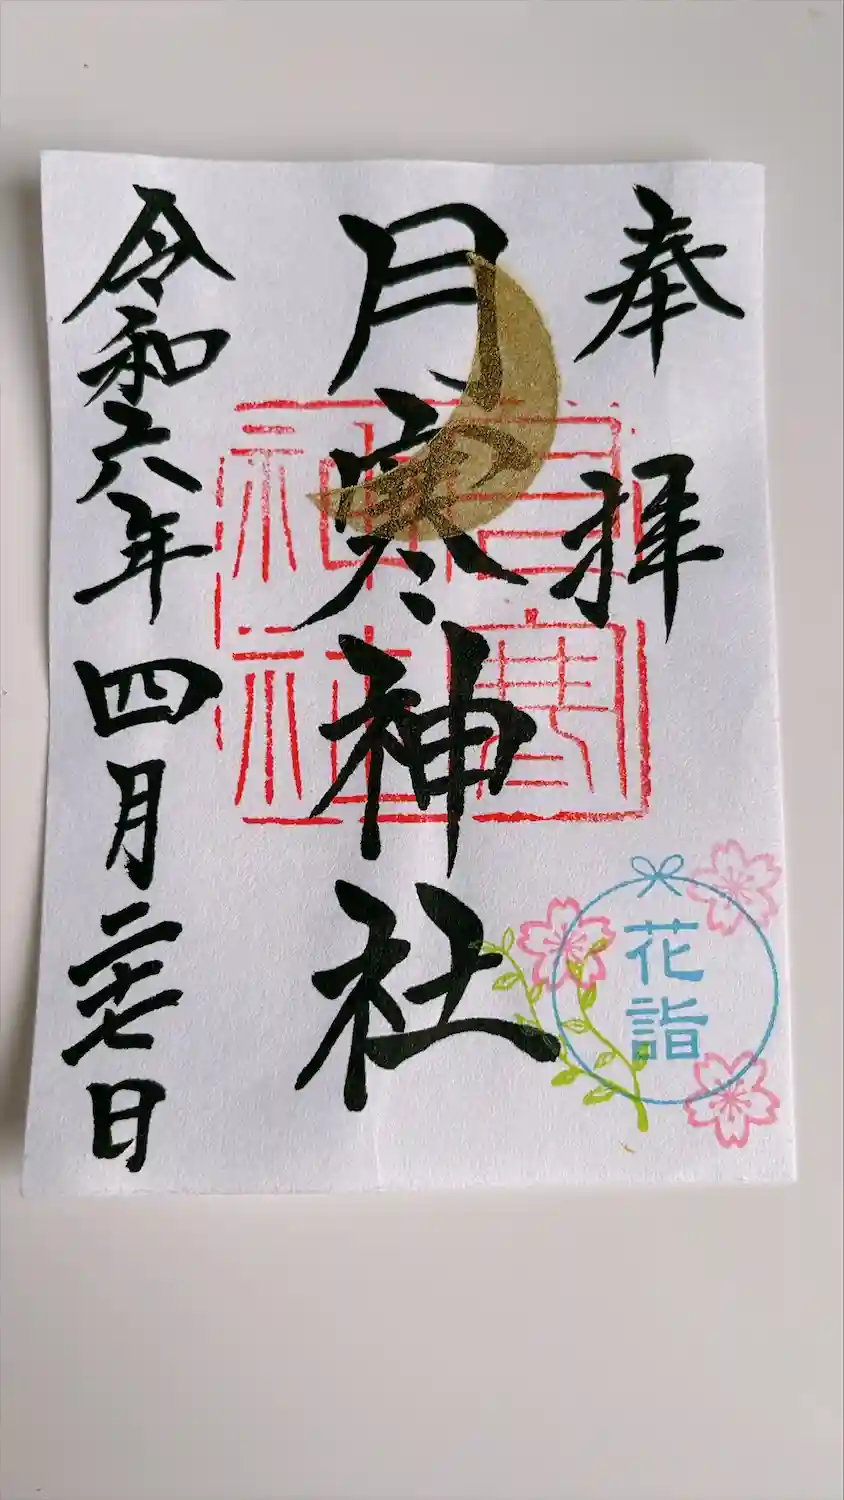 奉拝
月寒神社
月寒
神社
花詣
令和六年四月二十七日